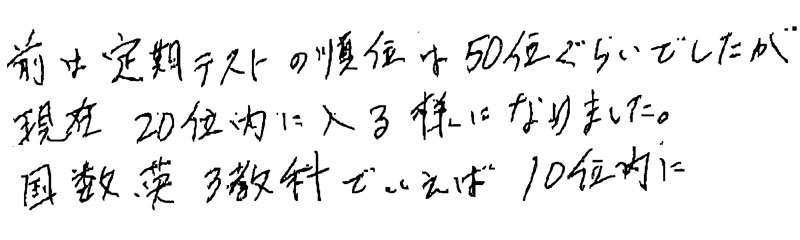 前は定期テストの順位は50位ぐらいでしたが
現在20位内に入る様になりました。
国数英3教科でいえば10位内に